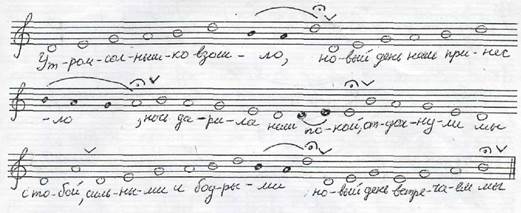 Ут-ром сол-ныш-ко взош-ло, но-вый день нам при-нес
-ло , ночь да-ри-ла нам по-кой, от-дох-ну-ли мы
с то-бой, силь-ны-ми и бод-ры-ми но-вый день встре-ча-ем мы